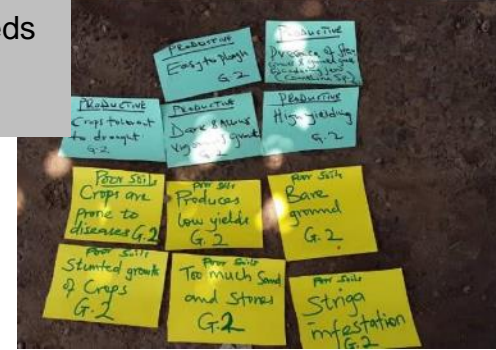 eds
PRODUCTIVE
Easy to plough
G.2
PRODUCTIVE
Presence of
PRODUCTIVE
Crops tolerant
to drought
G.2
PRODUCTIVE
Dark & allows
vigorous growth
G.2
PRODUCTIVE
High yielding
G.2
Poor Soils
Crops are
prone to
diseases G.2
Poor Soils
Produces
low yields
G.2
Poor Soils
Bare
ground
G.2.
Poor Soils
Stunted growth
of Crops
G.2
Too much Sand
and Stones
G.2
Poor Soils
Striga
infestation
G.2